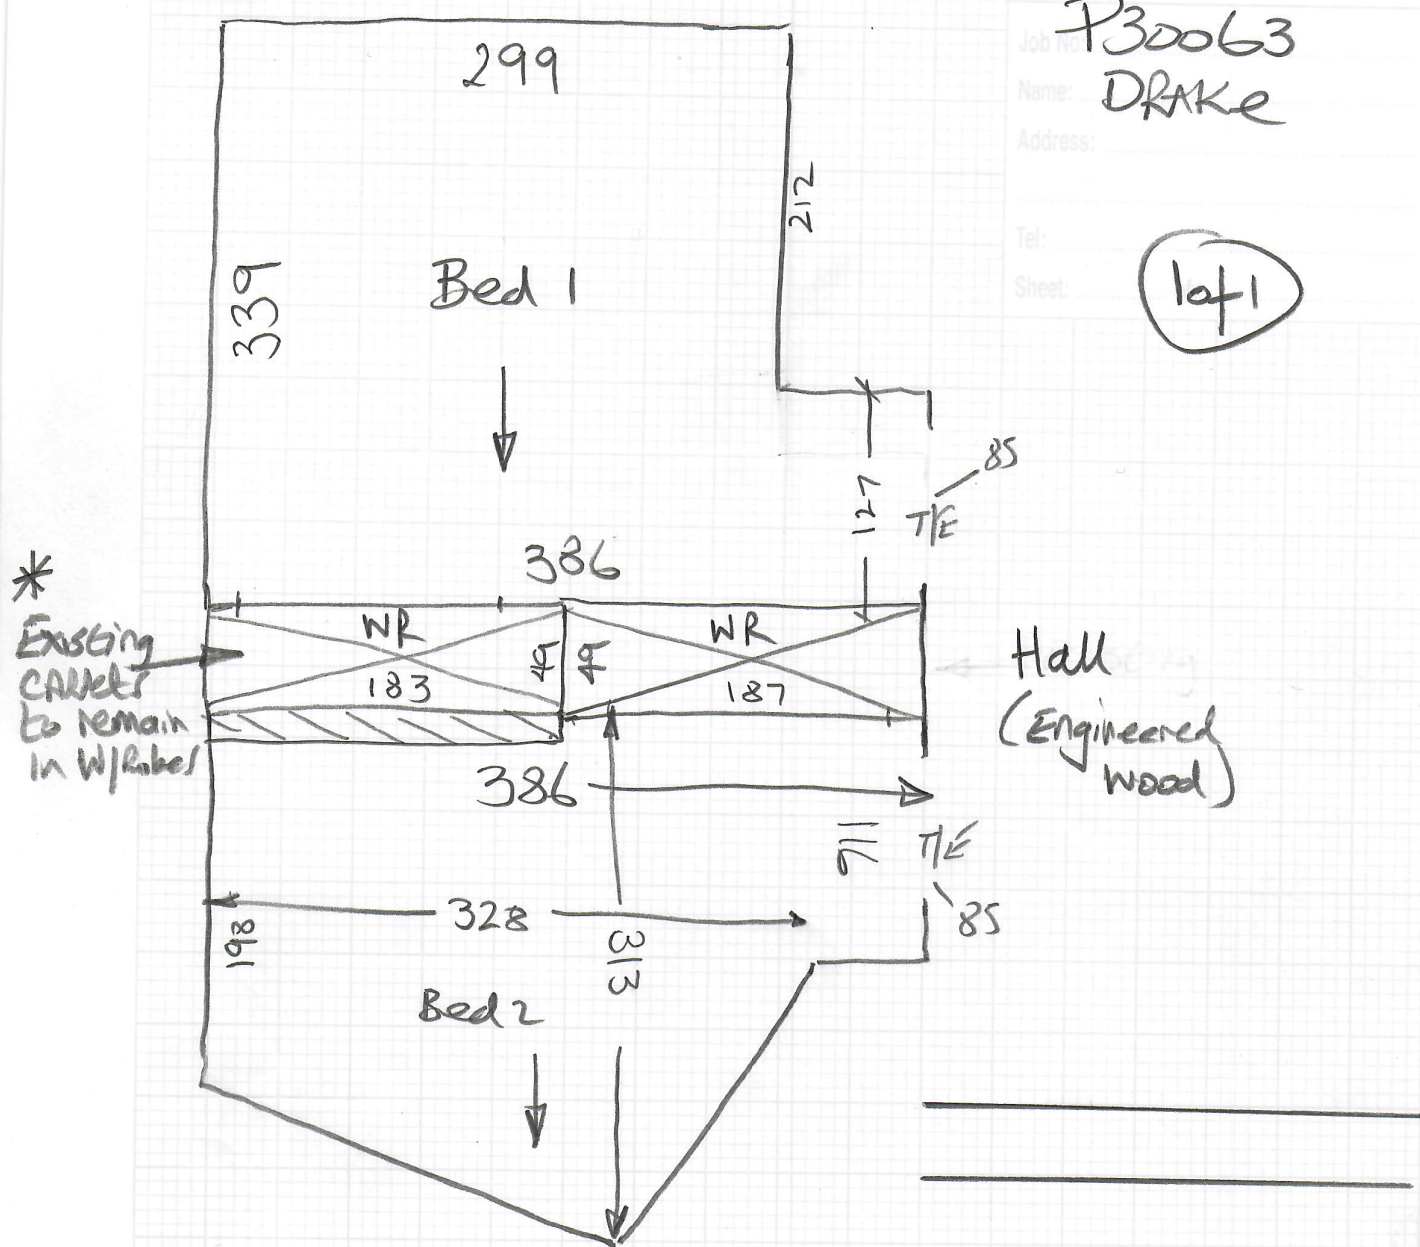 Job No P30063
Name: DRAKe
Address:
Tel:
Sheet: 1of1
299
212
339
Bed 1
127
85
T/E
386
*
Existing
CARPETS
to remain
in W/Robes
WR
183
49
49
WR
187
Hall
(Engineered
Wood)
386
116
T/E
85
328
198
313
Bed 2